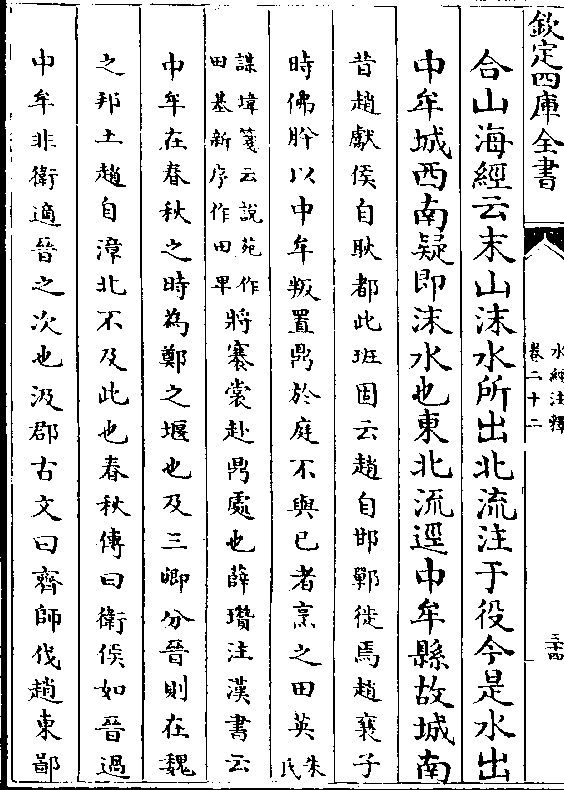 欽定四庫全書
水經注釋
卷二十二
三十四
合山海經云末山沫水所出北流注于役今是水出
中牟城西南疑即沫水也東北流逕中牟縣故城南
昔趙獻侯自耿都此班固云趙自邯鄲徙焉趙襄子
時佛肸以中牟叛置鼎於庭不與已者烹之田英朱氏
謀㙔箋云說苑作田基新序作田卑將褰裳赴鼎處也薛瓚注漢書云
中牟在春秋之時為鄭之堰也及三卿分晉則在魏
之邦土趙自漳北不及此也春秋傳曰衛侯如晉過
中牟非衛適晉之次也汲郡古文曰齊師伐趙東鄙